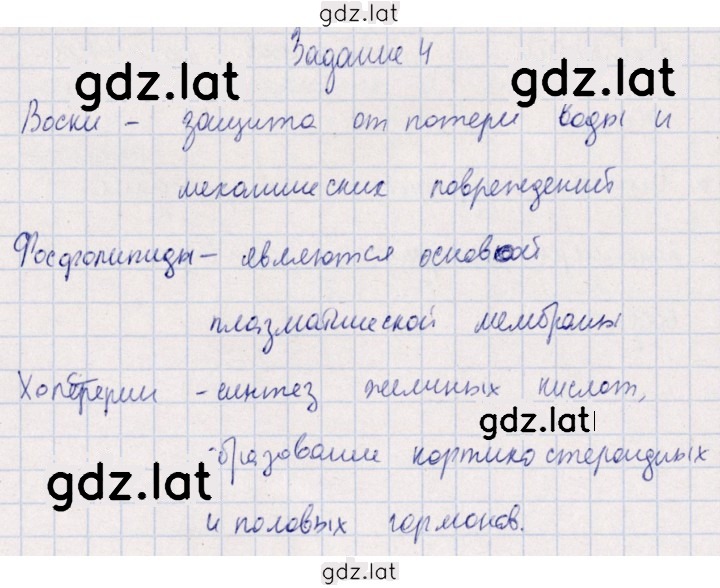 gdz.lat
Задание 4
gdz.lat gdz.lat
Воски - защита от потери воды и
механических повреждений
Фосфолипиды - являются основой
плазматической мембраны
Холестерин - синтез желчных кислот,
gdz.lat
образование кортикостероидных
gdz.lat
и половых гормонов.
gdz.lat